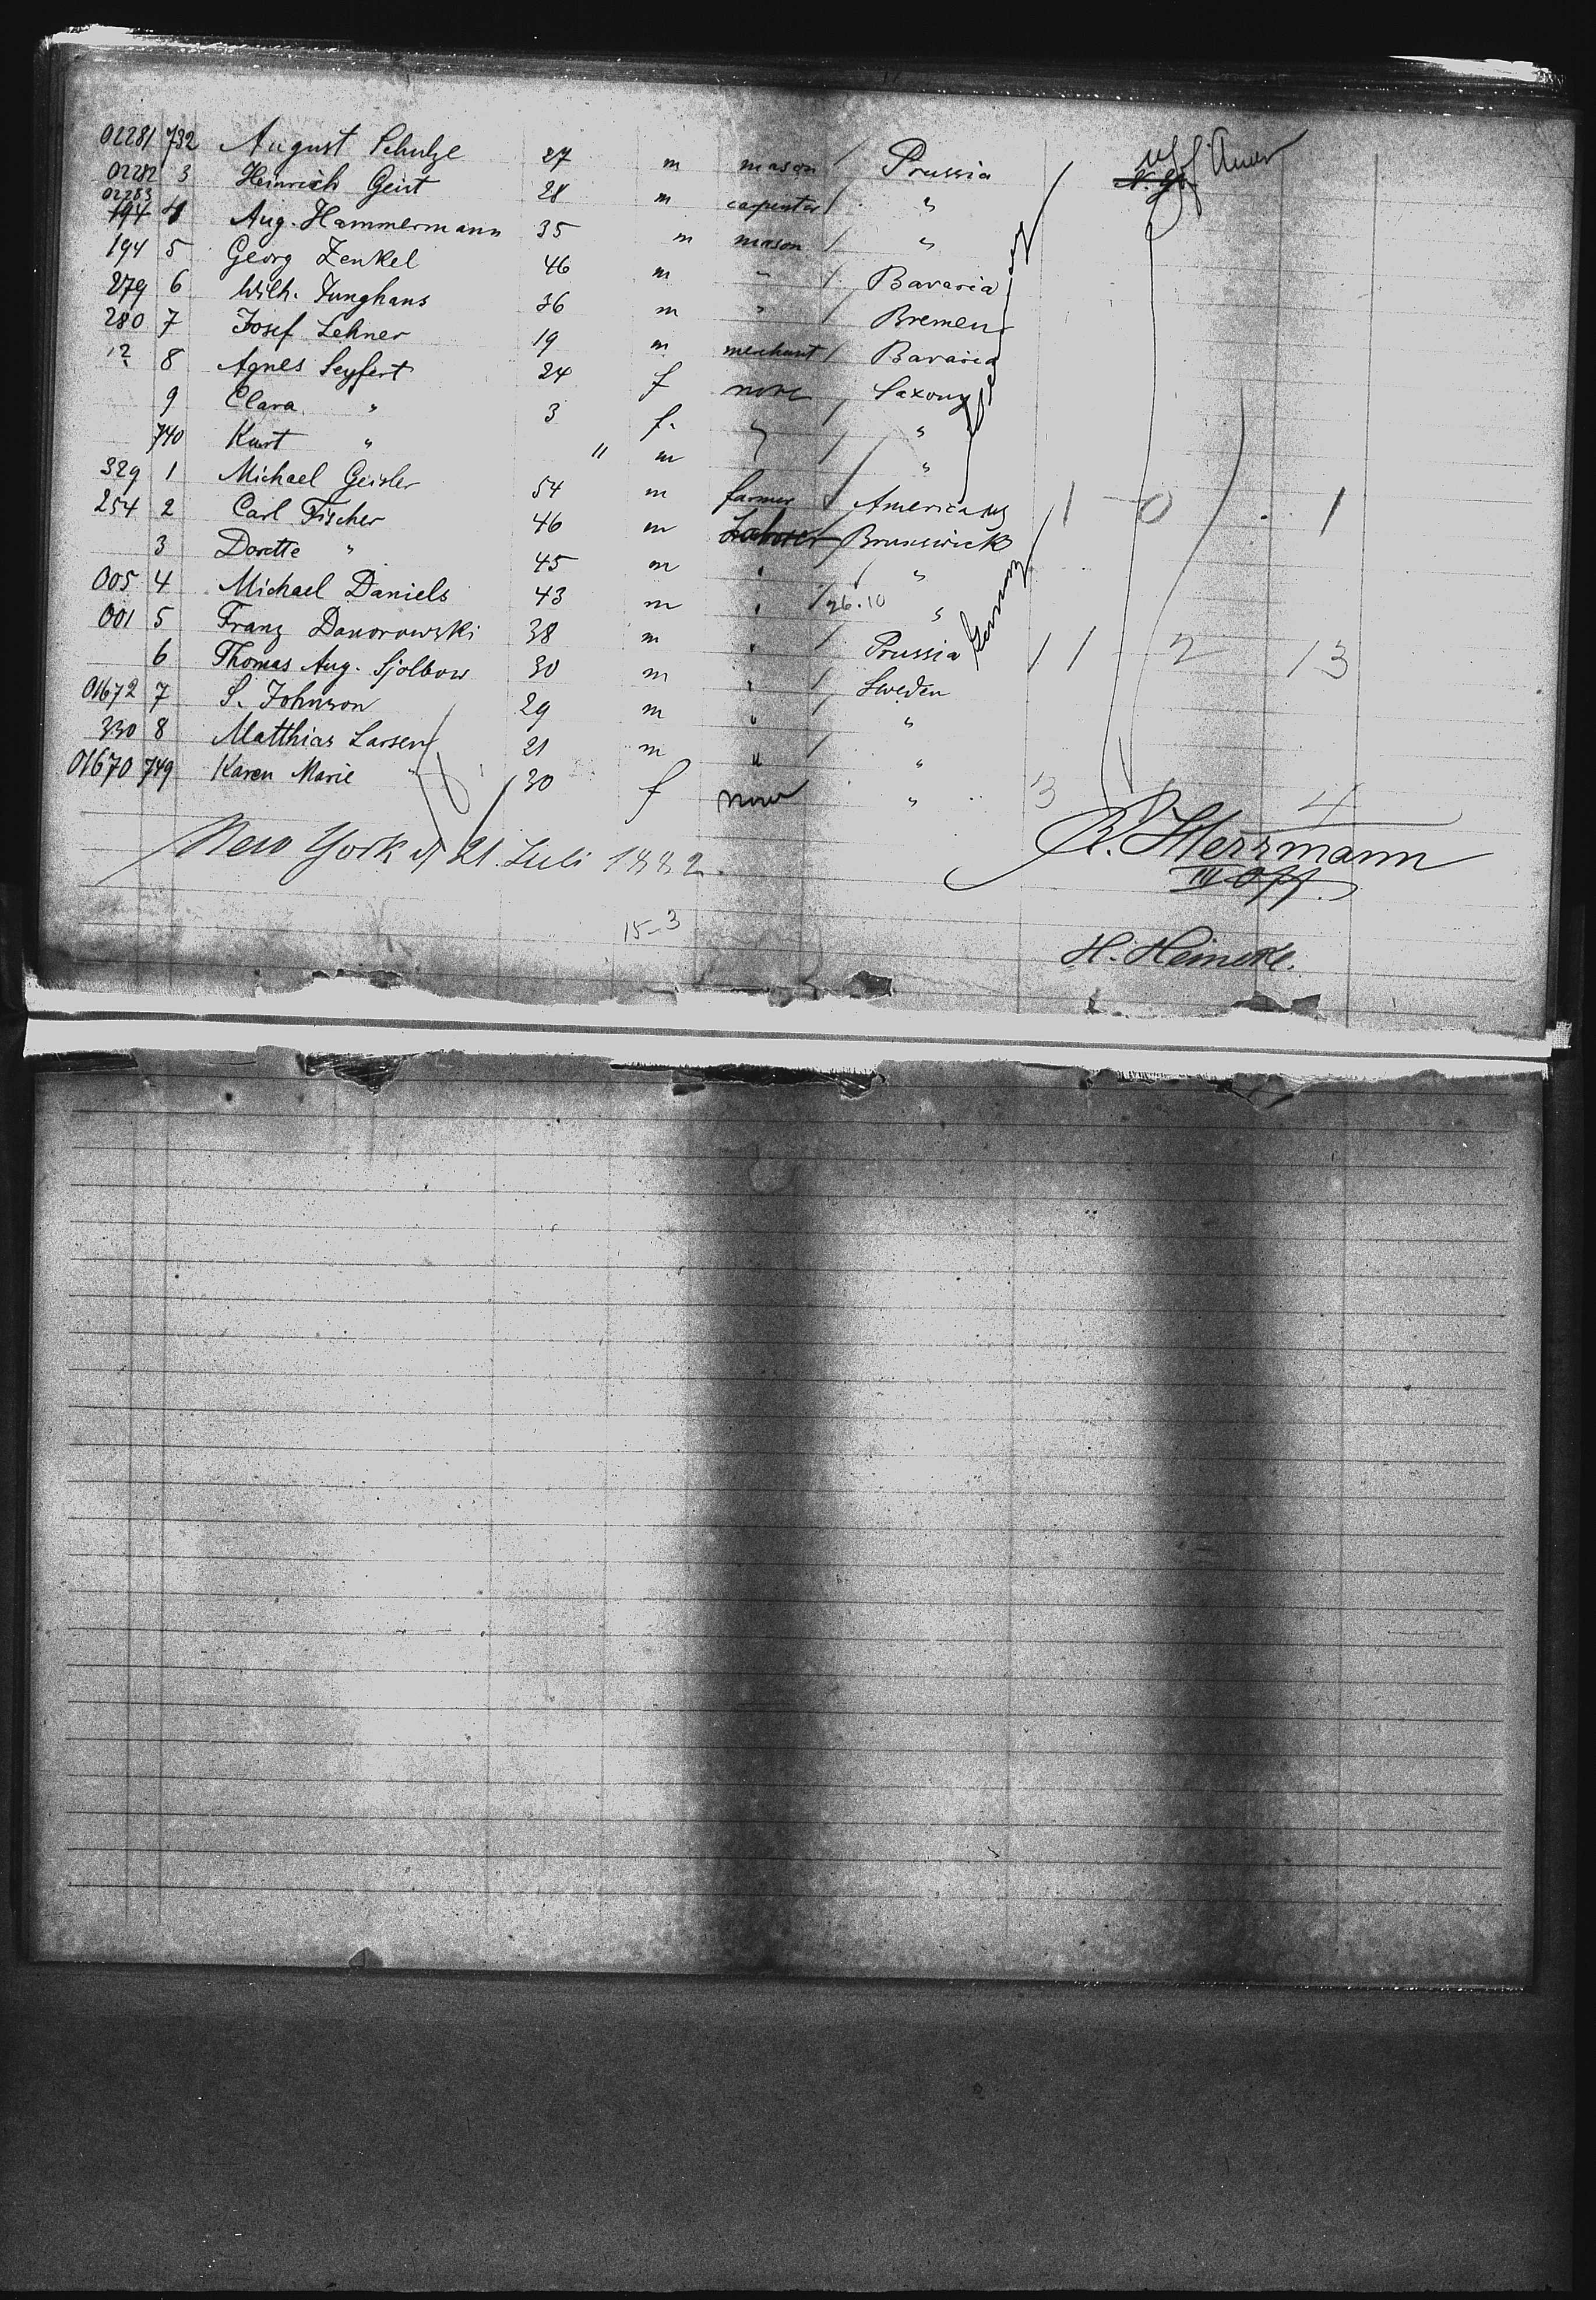 02281 732 August Schulze 27 m mason / Prussia
02282 3 Heinrich Geist 28 m carpenter / "
02283
194 4 Aug. Hammermann 35 m mason / "
194 5 Georg Zenkel 46 m " / Bavaria
279 6 Wilh. Junghans 36 m " / Bremen
280 7 Josef Lehner 19 m merchant / Bavaria
12 8 Agnes Seyfert 24 f none / Saxony
9 Clara " 3 f. " / "
740 Kurt " 11 m " / "
329 1 Michael Geisler 54 m farmer / America 1 0 1
254 2 Carl Fischer 46 m Laborer / Brunswick
3 Dorette " 45 m " / "
005 4 Michael Daniels 43 m " / 26.10 "
001 5 Franz Danorowski 38 m " / Prussia Germany 11 2 13
6 Thomas Aug. Sjolbow 30 m " / Sweden
01672 7 S. Johnson 29 m " / "
330 8 Matthias Larsen 21 m " / "
01670 749 Karen Marie " 30 f none " 3 4
New York d 21. Juli 1882.
R. Herrmann
III Off.
15-3
H. Heineke.